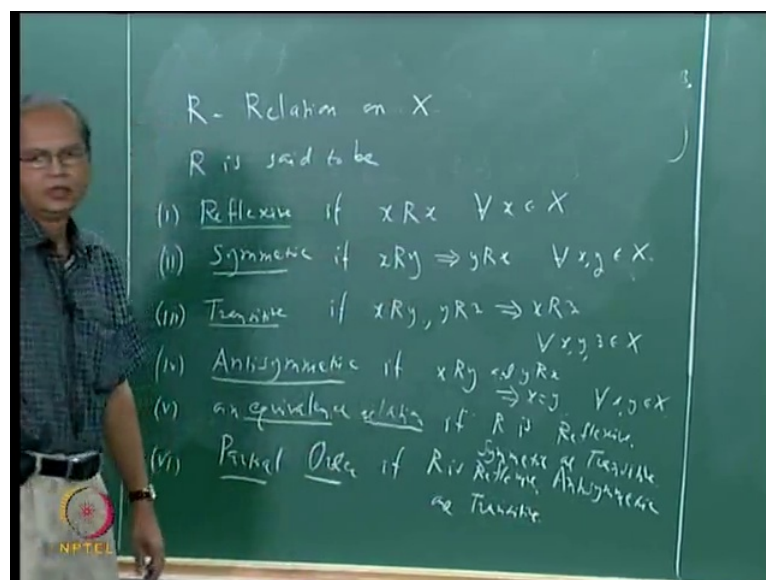 R - Relation on X
R is said to be
(i) Reflexive if xRx ∀ x ∈ X
(ii) Symmetric if xRy ⇒ yRx ∀ x, y ∈ X.
(iii) Transitive if xRy, yRz ⇒ xRz
∀ x, y, z ∈ X
(iv) Antisymmetric if xRy and yRx
⇒ x = y ∀ x, y ∈ X.
(v) an equivalence relation if R is Reflexive,
Symmetric and Transitive
(vi) Partial Order if R is Reflexive, Antisymmetric
and Transitive.
NPTEL